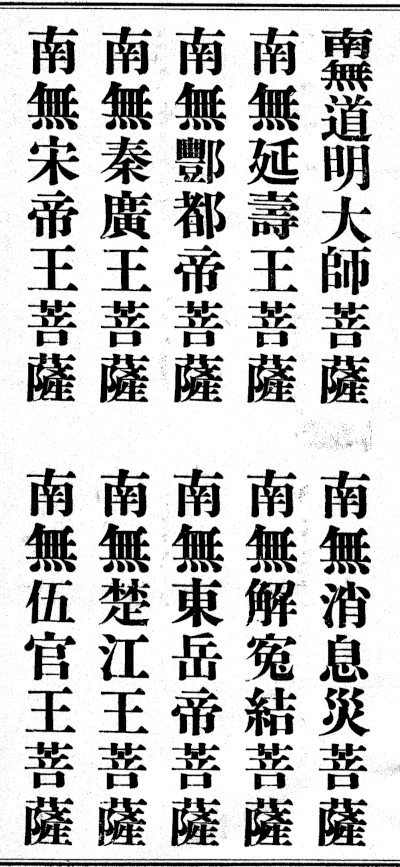 南無道明大師菩薩
南無消息災菩薩
南無延壽王菩薩
南無解冤結菩薩
南無酆都帝菩薩
南無東岳帝菩薩
南無秦廣王菩薩
南無楚江王菩薩
南無宋帝王菩薩
南無伍官王菩薩